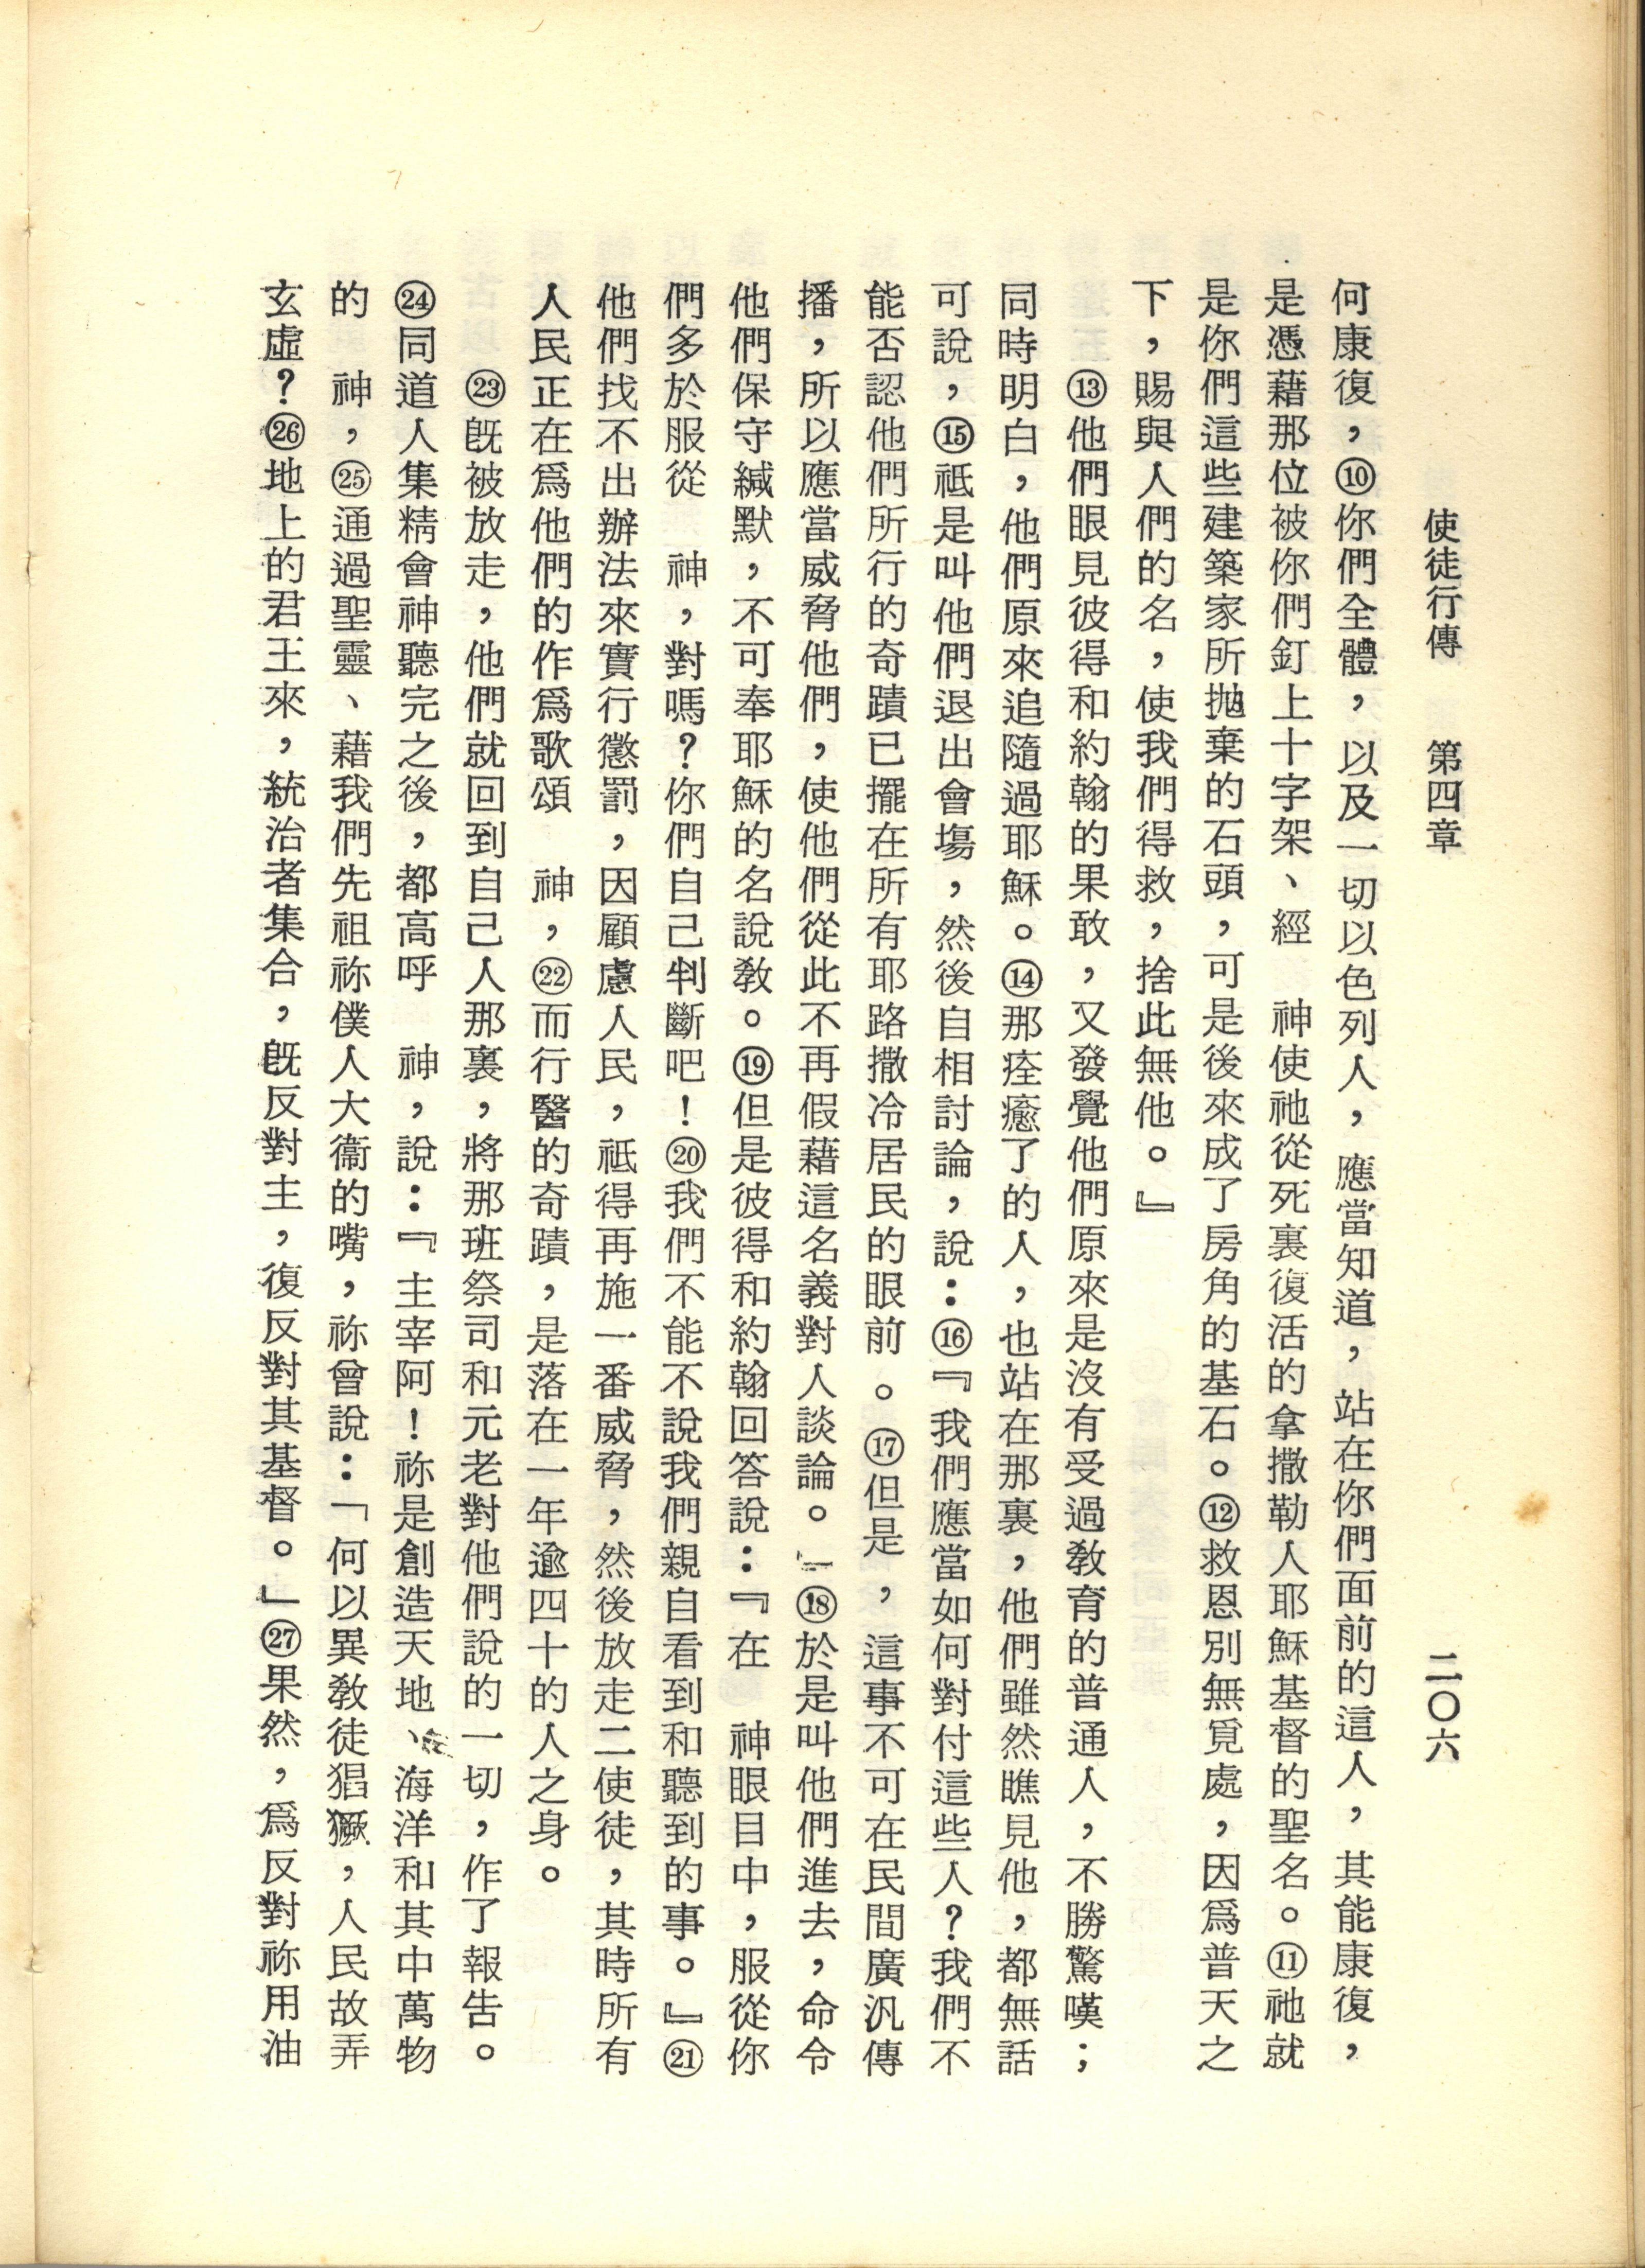 使徒行傳　第四章　二〇六
何康復，⑩你們全體，以及一切以色列人，應當知道，站在你們面前的這人，其能康復，
是憑藉那位被你們釘上十字架、經　神使祂從死裏復活的拿撒勒人耶穌基督的聖名。⑪祂就
是你們這些建築家所拋棄的石頭，可是後來成了房角的基石。⑫救恩別無覓處，因爲普天之
下，賜與人們的名，使我們得救，捨此無他。』
⑬他們眼見彼得和約翰的果敢，又發覺他們原來是沒有受過教育的普通人，不勝驚嘆；
同時明白，他們原來追隨過耶穌。⑭那痊癒了的人，也站在那裏，他們雖然瞧見他，都無話
可說，⑮祗是叫他們退出會塲，然後自相討論，說：⑯『我們應當如何對付這些人？我們不
能否認他們所行的奇蹟已擺在所有耶路撒冷居民的眼前。⑰但是，這事不可在民間廣汎傳
播，所以應當威脅他們，使他們從此不再假藉這名義對人談論。』⑱於是叫他們進去，命令
他們保守緘默，不可奉耶穌的名說教。⑲但是彼得和約翰回答說：『在　神眼目中，服從你
們多於服從　神，對嗎？你們自己判斷吧！⑳我們不能不說我們親自看到和聽到的事。』㉑
他們找不出辦法來實行懲罰，因顧慮人民，祗得再施一番威脅，然後放走二使徒，其時所有
人民正在爲他們的作爲歌頌　神，㉒而行醫的奇蹟，是落在一年逾四十的人之身。
㉓旣被放走，他們就回到自己人那裏，將那班祭司和元老對他們說的一切，作了報告。
㉔同道人集精會神聽完之後，都高呼　神，說：『主宰阿！祢是創造天地、海洋和其中萬物
的　神，㉕通過聖靈、藉我們先祖祢僕人大衞的嘴，祢曾說：「何以異教徒猖獗，人民故弄
玄虛？㉖地上的君王來，統治者集合，旣反對主，復反對其基督。」㉗果然，爲反對祢用油